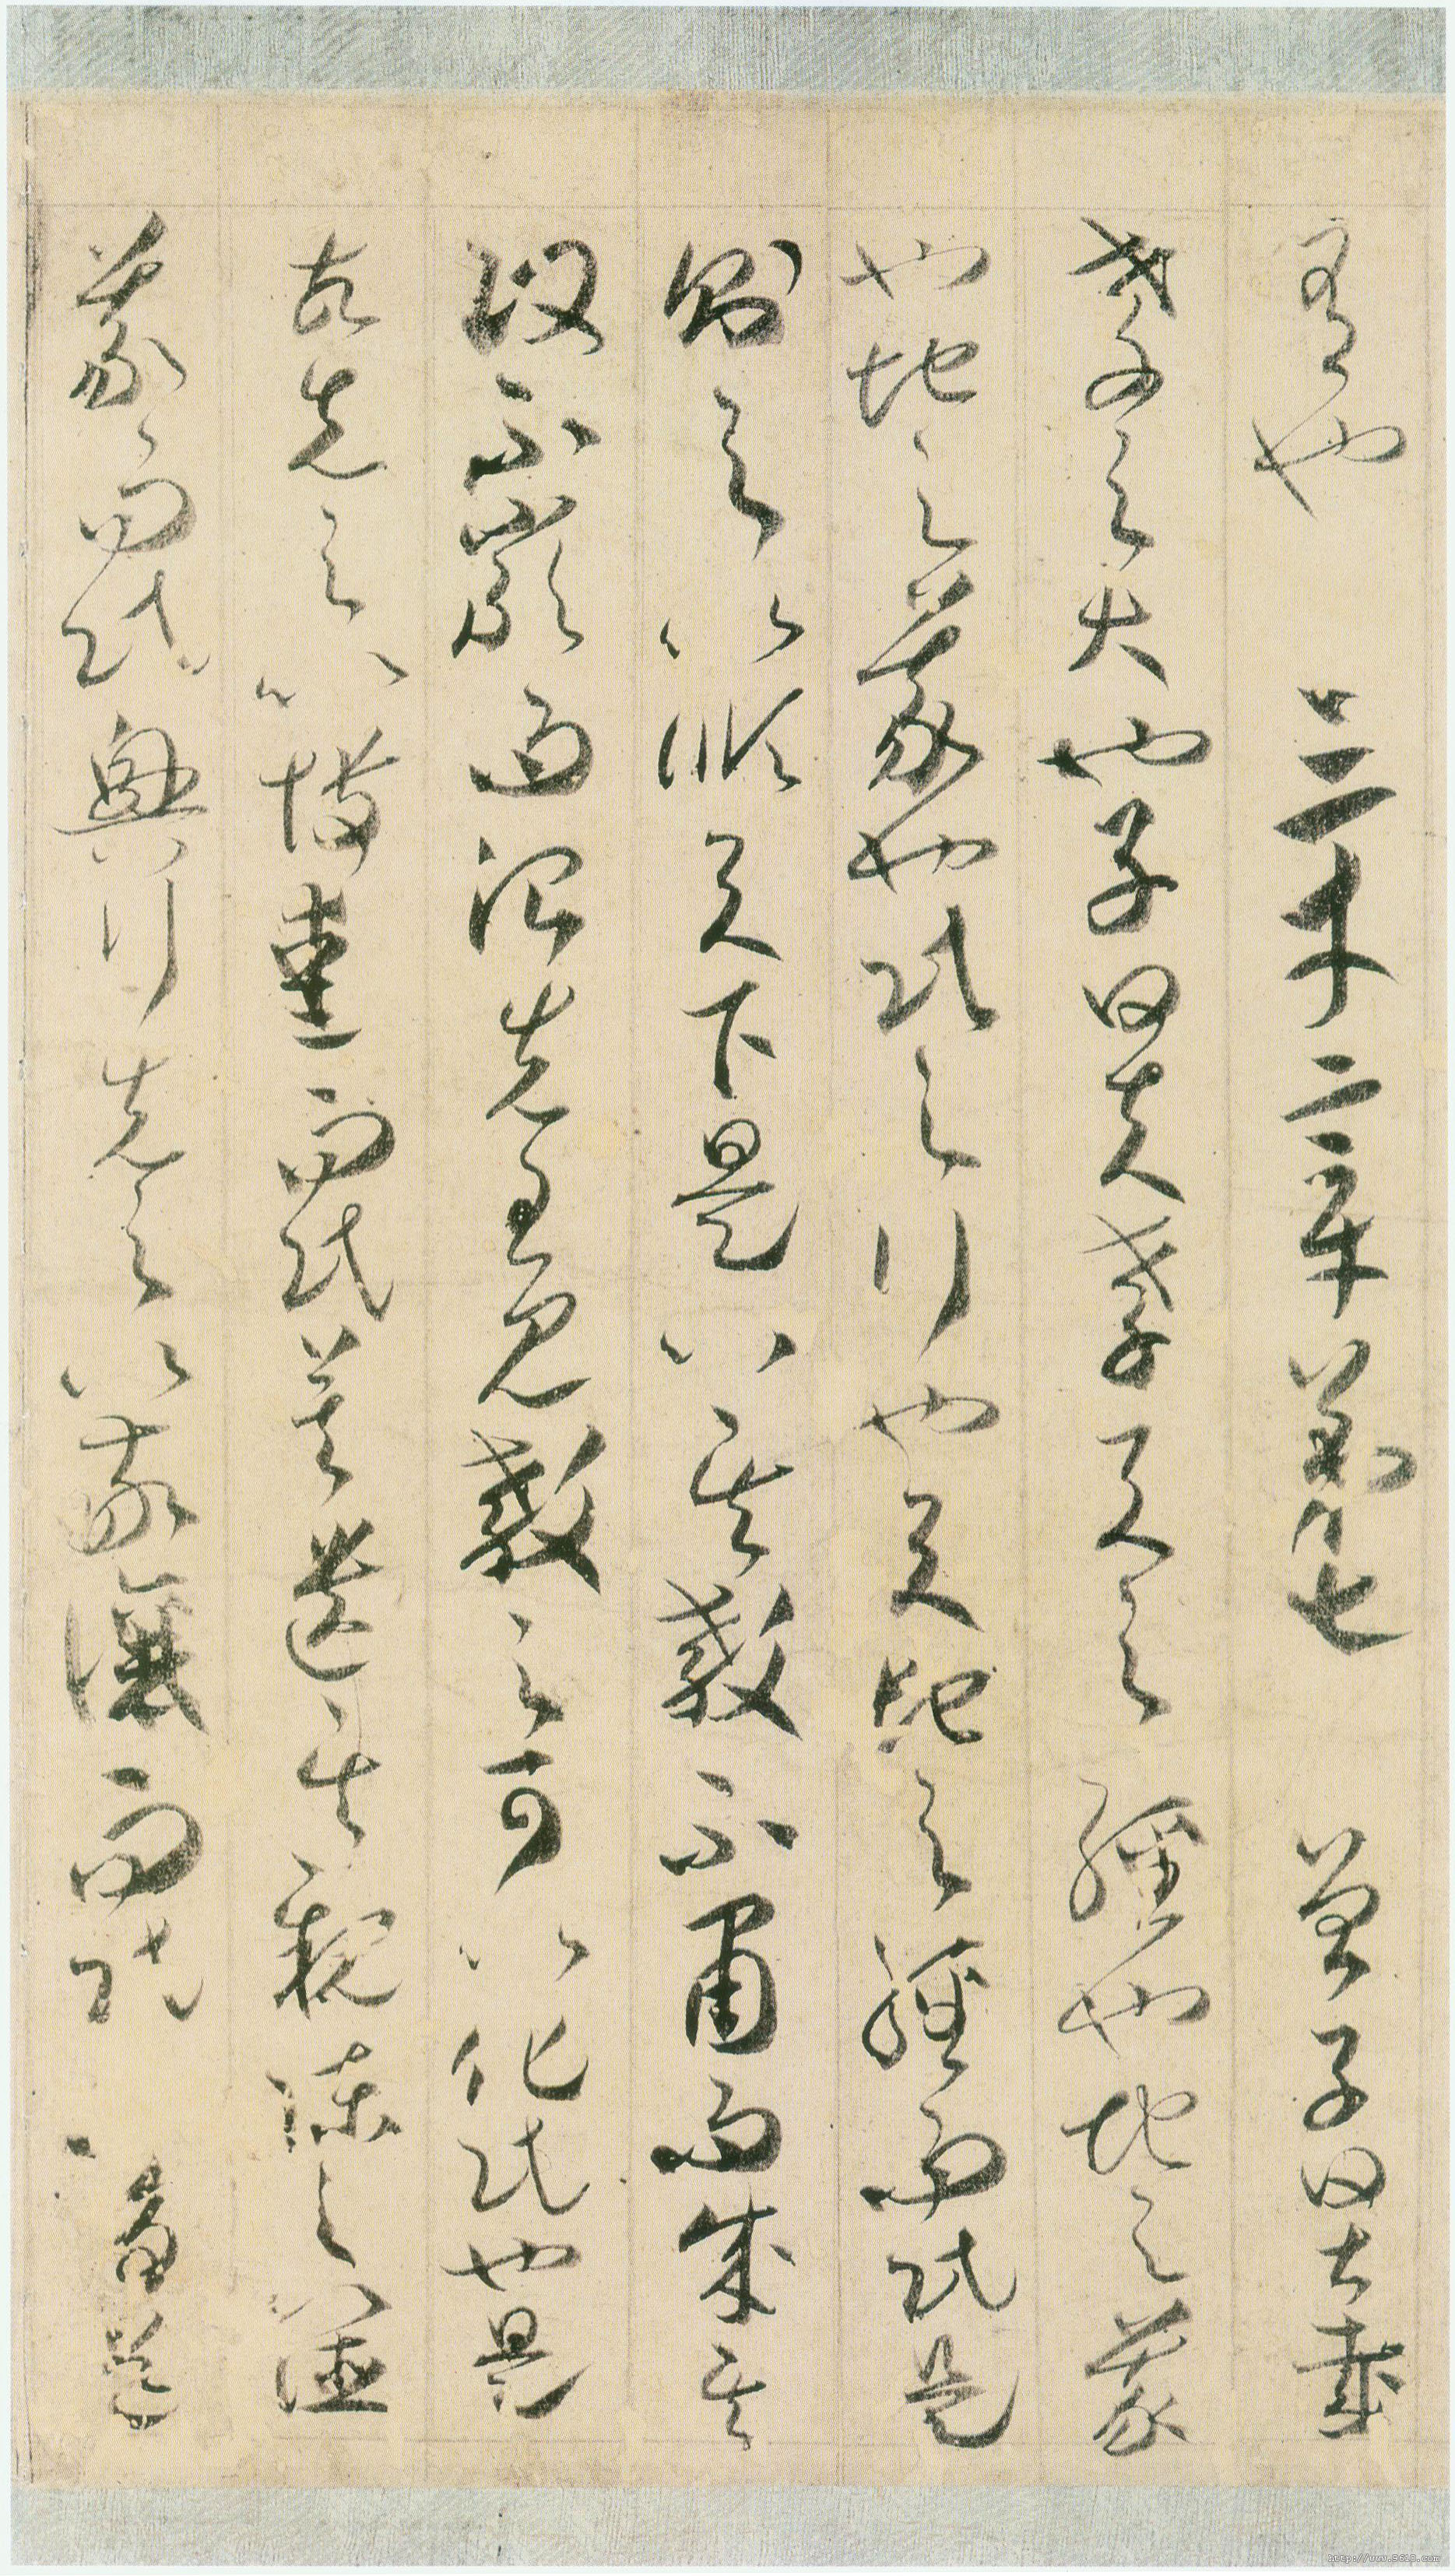 有也　三才章第七　曾子曰甚哉
孝之大也子曰夫孝天之經也地之義
也地之義也民之行也天地之經而民是
則之以順天下是以其教不肅而成其
政不嚴而治先王見教之可以化民也是
故先之以博愛而民莫遺其親陳之以德
義而民興行先之以敬讓而民不爭導
http://www.9610.com